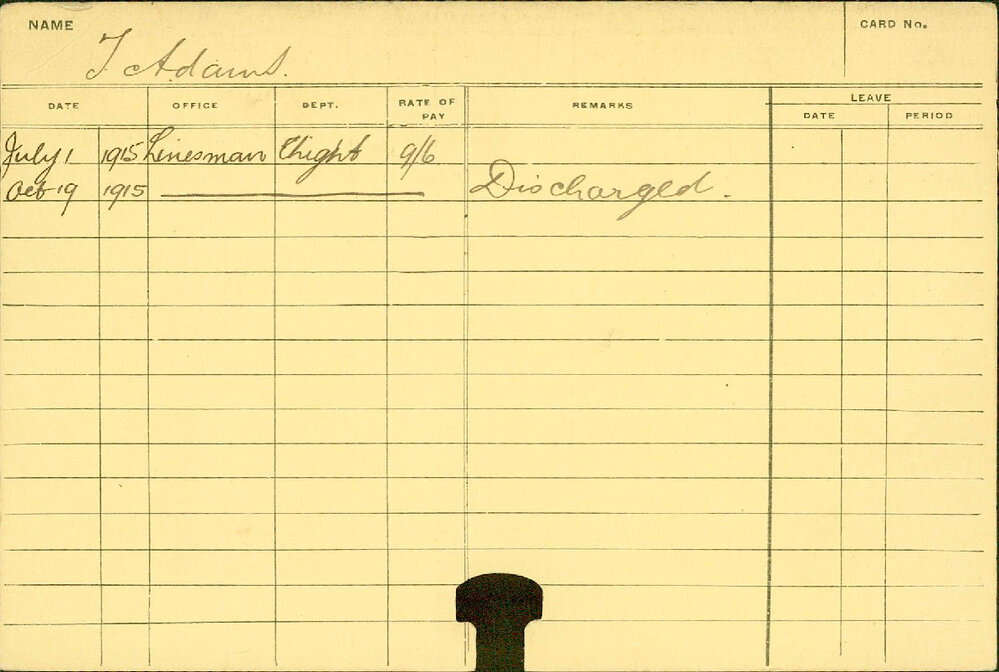 NAME CARD No.
J Adams.
DATE OFFICE DEPT. RATE OF PAY REMARKS LEAVE
DATE PERIOD
July 1 1915 Linesman 9/6
Oct 19 1915 Discharged.